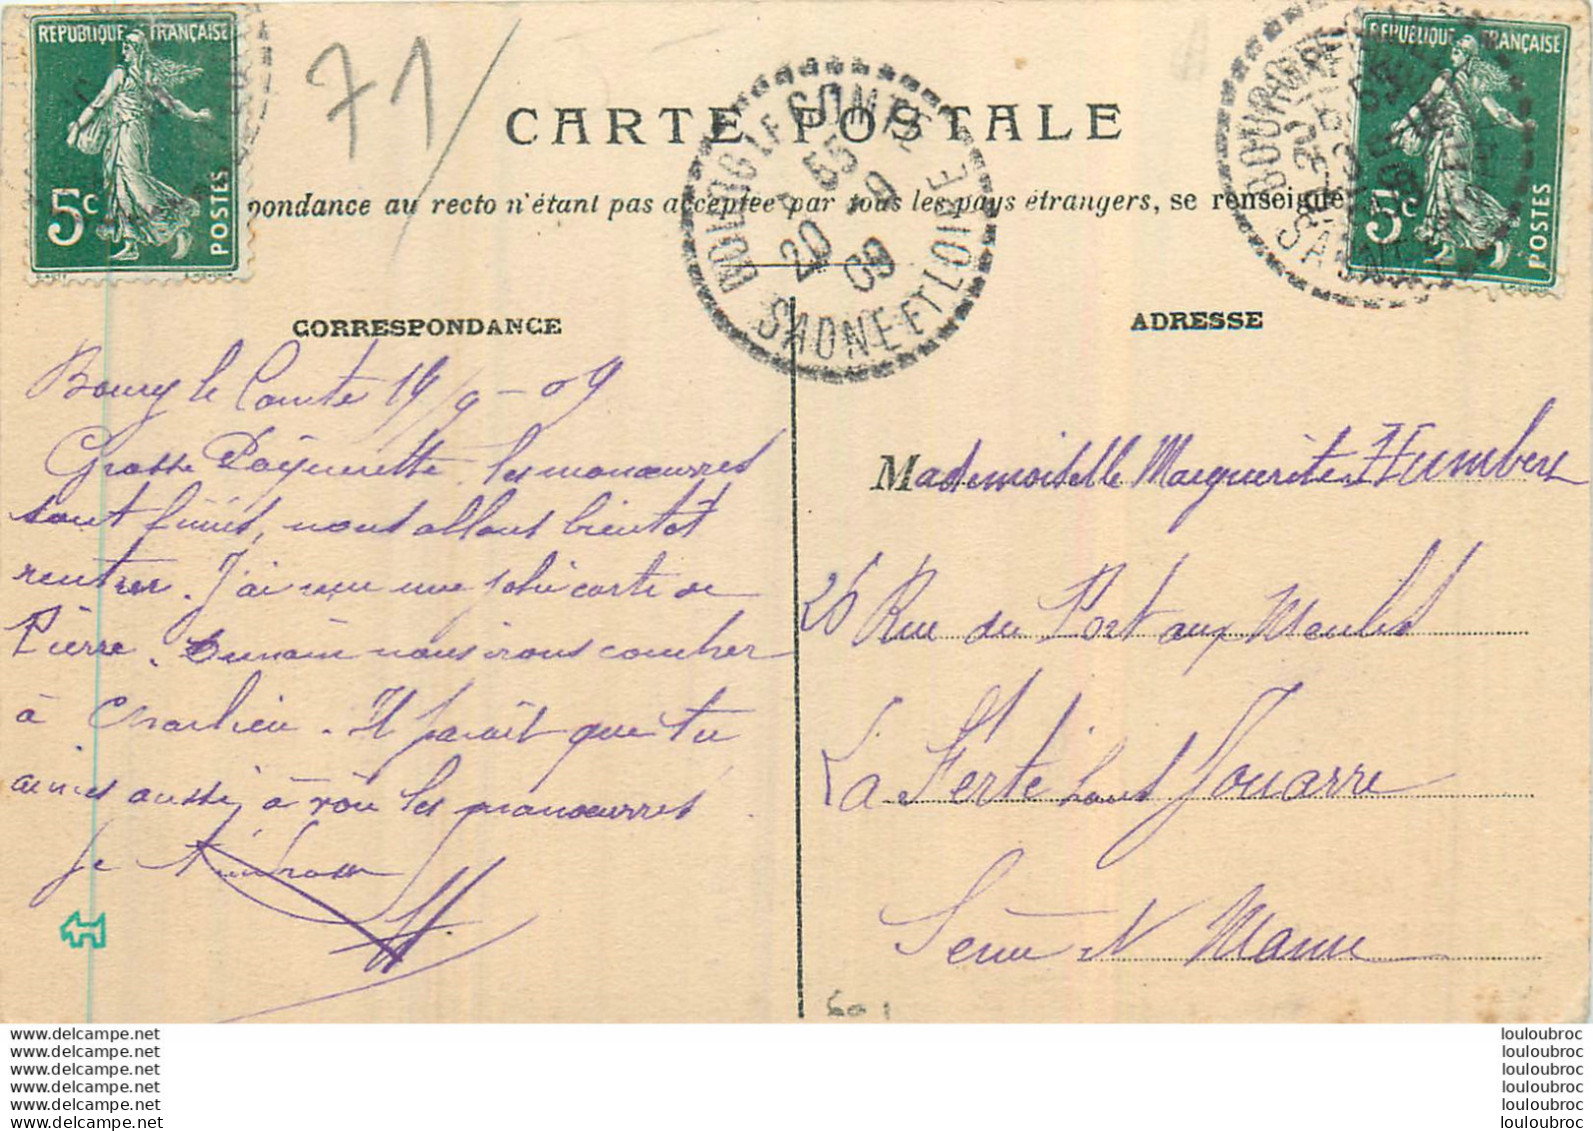 REPUBLIQUE FRANÇAISE
5c POSTES
71
CARTE POSTALE
REPUBLIQUE FRANÇAISE
5c POSTES
pondance au recto n'étant pas acceptée par tous les pays étrangers, se renseigne
BOURG LE COMTE
55
20 9 09
SAONE ET LOIRE
CORRESPONDANCE
ADRESSE
Bourg le Comte 19/9-09
Grosse Paquerette. les manoeuvres
sont finies, nous allons bientôt
rentrer. J'ai reçu une jolie carte de
Pierre. Demain nous irons coucher
à Charlieu. Il parait que tu
aimes aussi à voir les manoeuvres
Je t'embrasse
H.
Mademoiselle Marguerite Humbert
26 Rue du Port aux Meules
La Ferté sous Jouarre
Seine et Marne
www.delcampe.net
www.delcampe.net
www.delcampe.net
www.delcampe.net
www.delcampe.net
www.delcampe.net
louloubroc
louloubroc
louloubroc
louloubroc
louloubroc
louloubroc